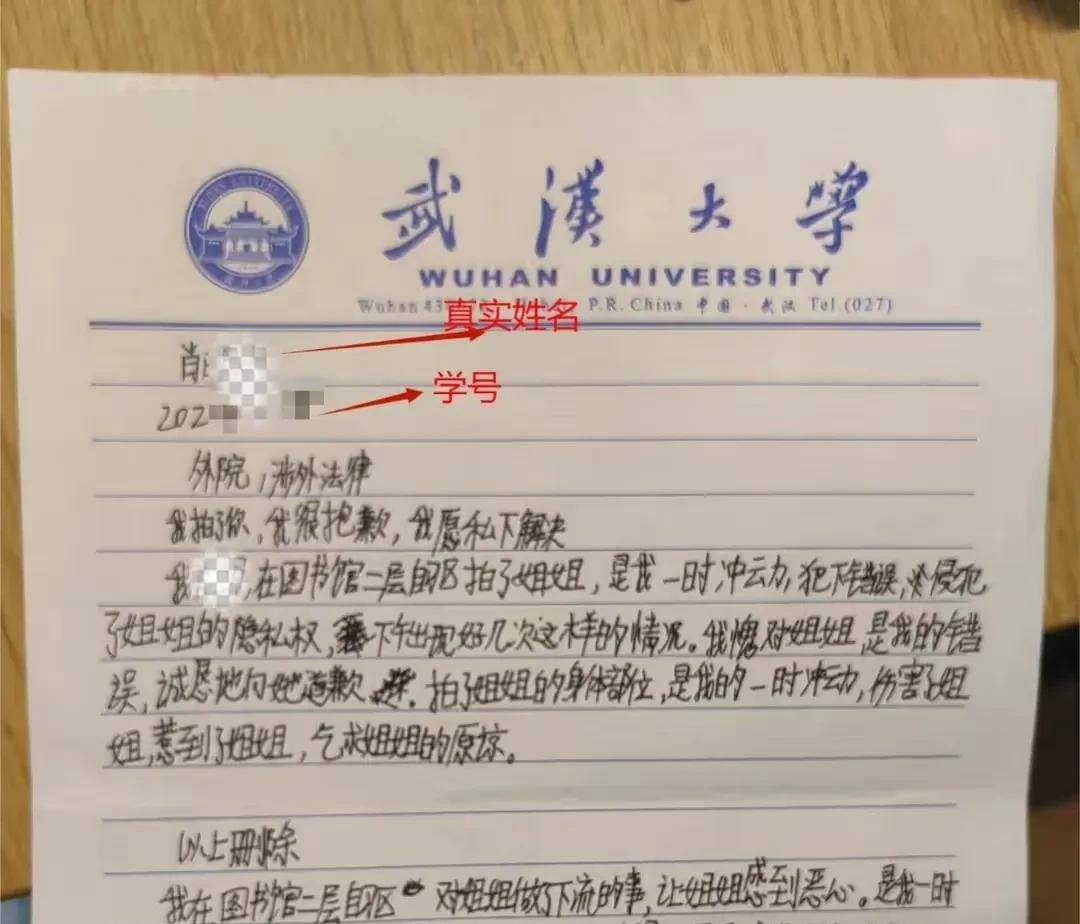 武漢大學
WUHAN UNIVERSITY
Wuhan 43 P.R. China 中国·武汉 Tel.(027)
真实姓名
肖
学号
202
外院，涉外法律
我拍了你，我很抱歉，我愿私下解决
我 ，在图书馆二层自习区拍了姐姐，是我一时冲动，犯下错误，侵犯
了姐姐的隐私权，下午出现好几次这样的情况。我愧对姐姐，是我的错
误，诚恳地向她道歉。拍了姐姐的身体部位，是我的一时冲动，伤害了姐
姐，惹到了姐姐，乞求姐姐的原谅。
以上删除
我在图书馆二层自习区 对姐姐做了下流的事，让姐姐感到恶心。是我一时